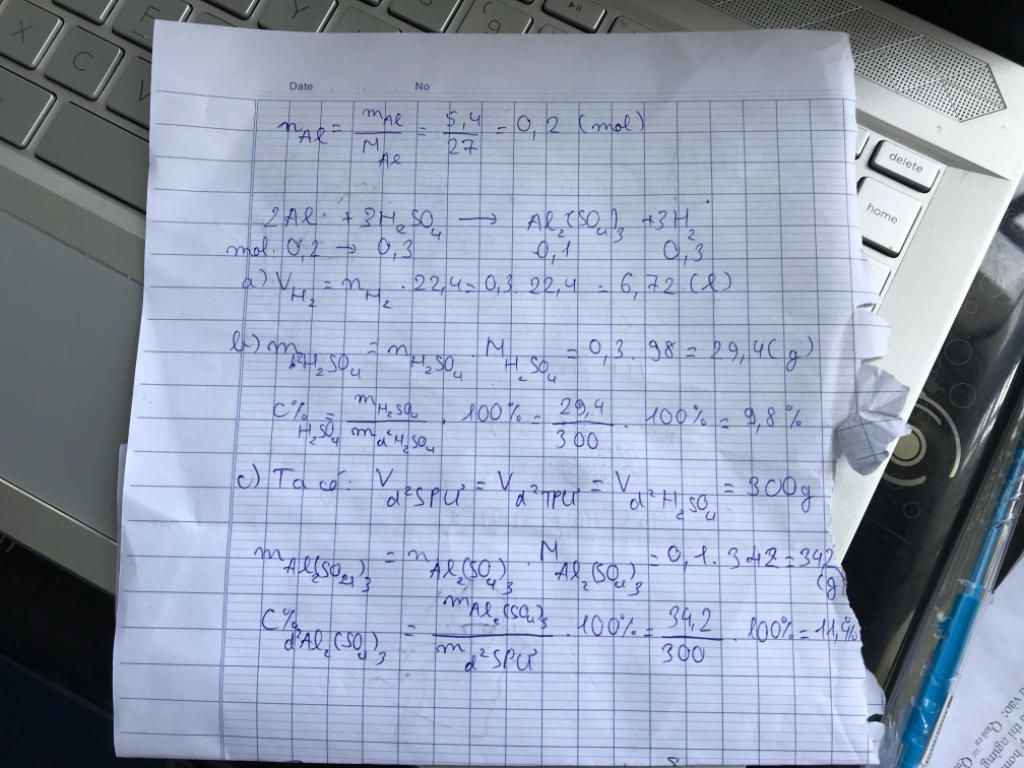 X
F
Y
C
V
9
▸ıı
delete
home
Date No
n_Al = m_Al / M_Al = 5,4 / 27 = 0,2 (mol)
2Al + 3H₂SO₄ → Al₂(SO₄)₃ + 3H₂
mol: 0,2 → 0,3 0,1 0,3
a) V_H₂ = n_H₂ . 22,4 = 0,3 . 22,4 = 6,72 (l)
b) m_H₂SO₄ = n_H₂SO₄ . M_H₂SO₄ = 0,3 . 98 = 29,4 (g)
C%_H₂SO₄ = m_H₂SO₄ / m_d²H₂SO₄ . 100% = 29,4 / 300 . 100% = 9,8%
c) Ta có: V_d²SPU' = V_d²TPU' = V_d²H₂SO₄ = 300g
m_Al₂(SO₄)₃ = n_Al₂(SO₄)₃ . M_Al₂(SO₄)₃ = 0,1 . 342 = 342 (g)
C%_d²Al₂(SO₄)₃ = m_Al₂(SO₄)₃ / m_d²SPU' . 100% = 34,2 / 300 . 100% = 11,4%